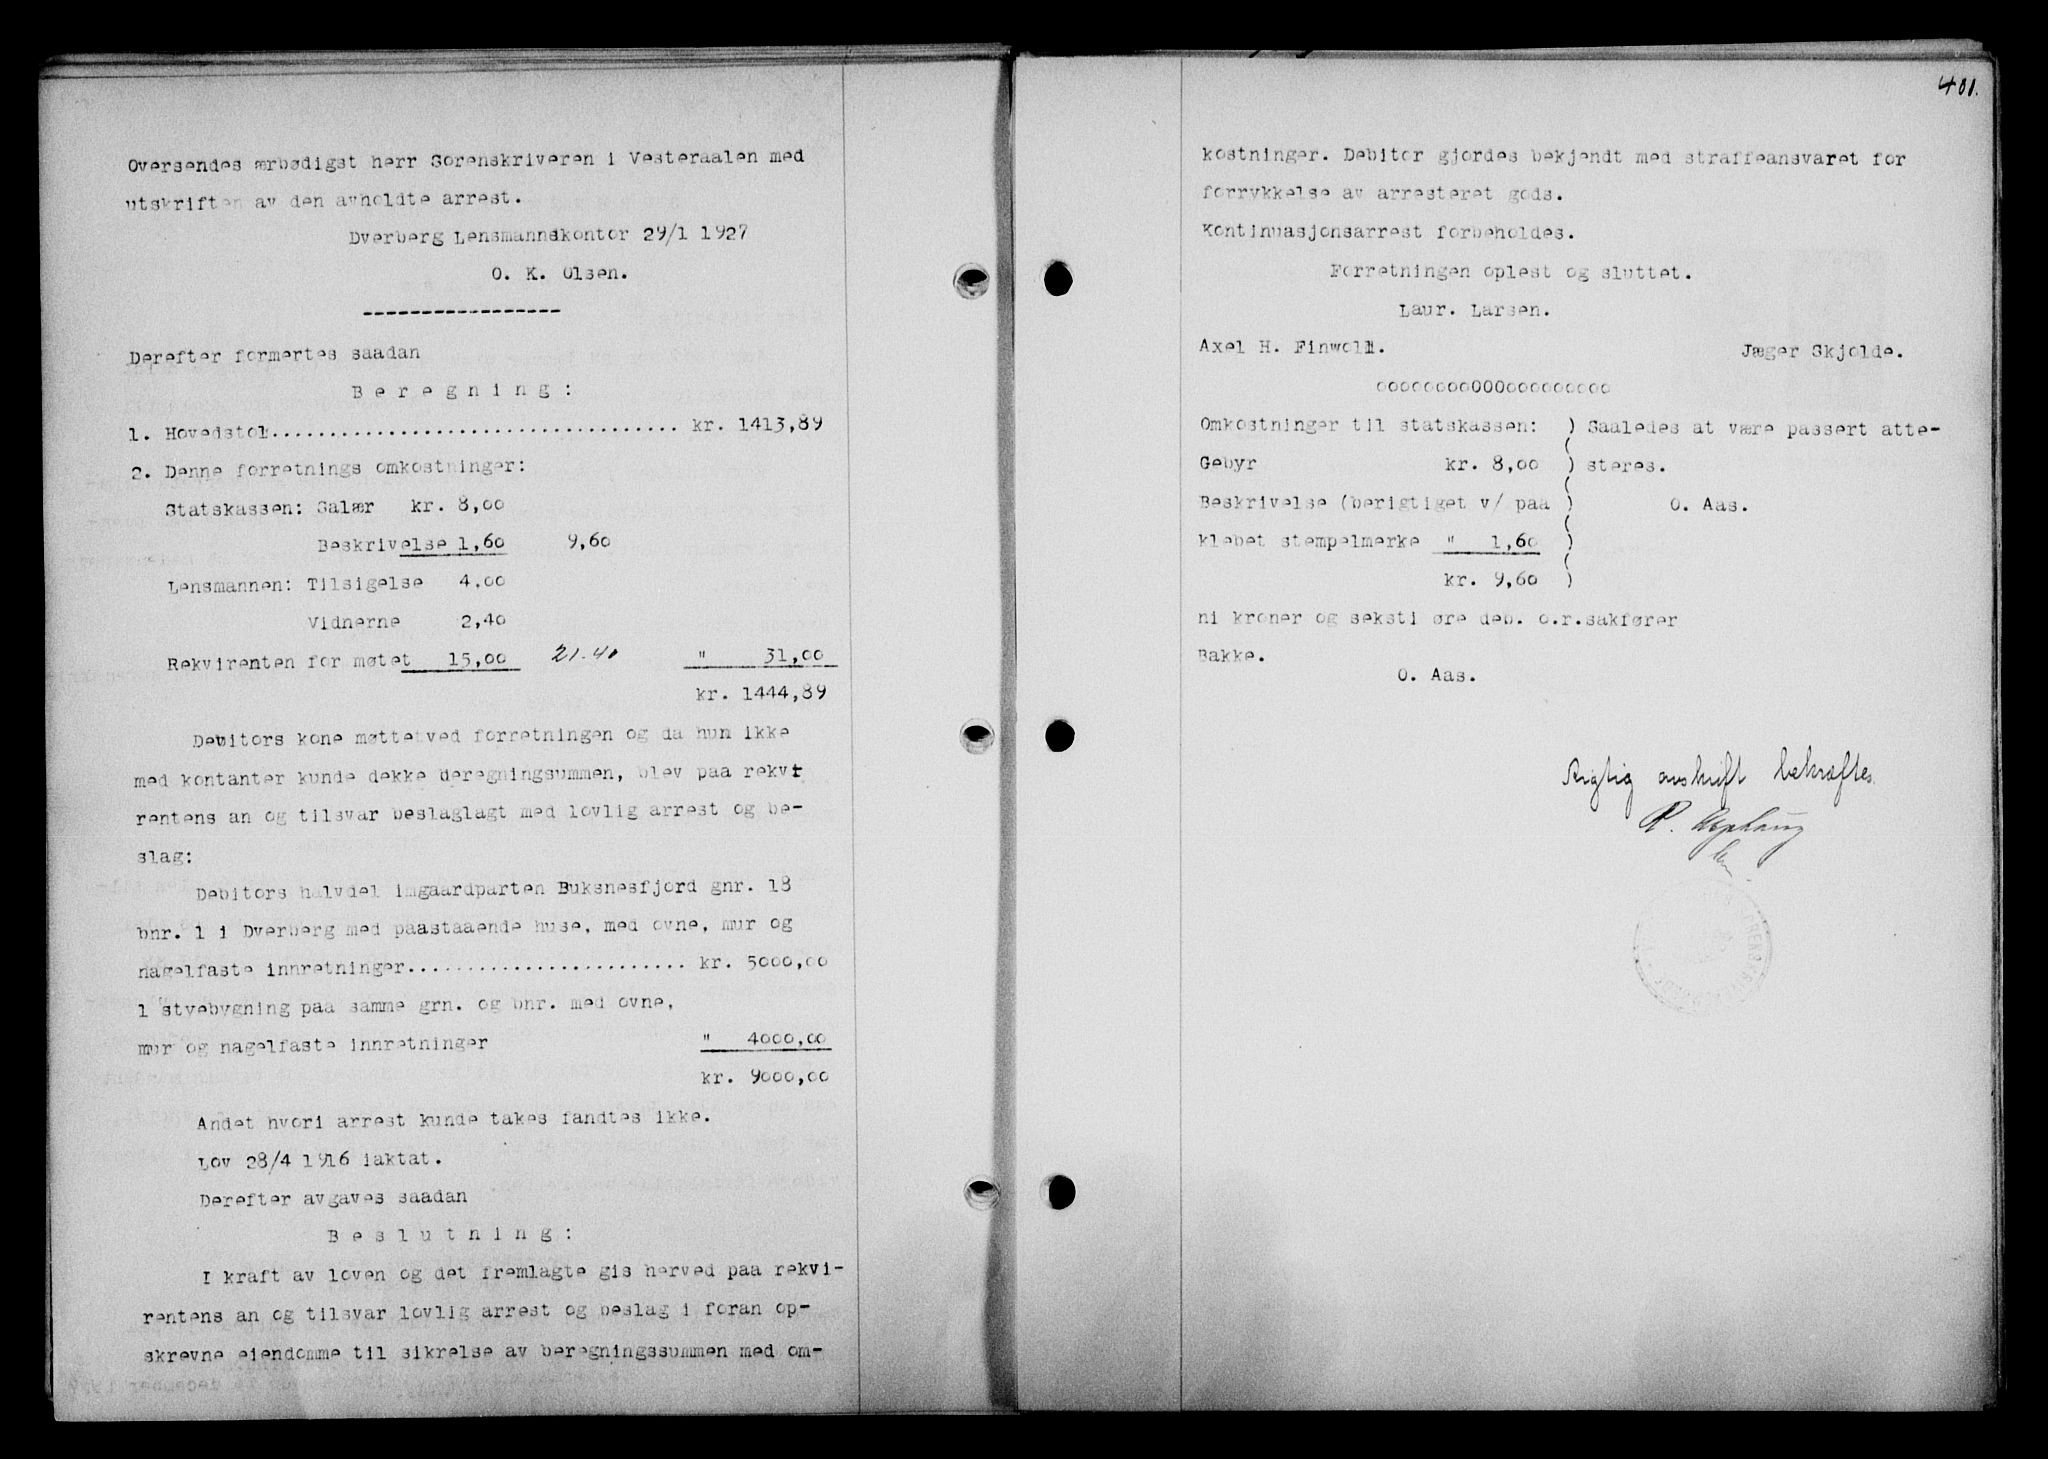 Oversendes ærbødigst herr Sorenskriveren i Vesteraalen med
utskriften av den avholdte arrest.
Dverberg Lensmannskontor 29/1 1927
O. K. Olsen.
-----------------
Derefter formertes saadan
B e r e g n i n g :
1. Hovedstol................................... kr. 1413,89
2. Denne forretnings omkostninger:
Statskassen: Salær kr. 8,00
Beskrivelse 1,60 9,60
Lensmannen: Tilsigelse 4.00
Vidnerne 2,40
Rekvirenten for møtet 15,00 21.40 " 31,00
kr. 1444,89
Debitors kone møttetved forretningen og da hun ikke
med kontanter kunde dekke beregningsummen, blev paa rekvi
rentens an og tilsvar beslaglagt med lovlig arrest og be-
slag:
Debitors halvdel imgaardparten Buksnesfjord gnr. 18
bnr. 1 i Dverberg med paastaaende huse, med ovne, mur og
nagelfaste innretninger........................ kr. 5000,00
1 stuebygning paa samme grn. og bnr. med ovne,
mur og nagelfaste innretninger " 4000,00
kr. 9000,00
Andet hvori arrest kunde takes fandtes ikke.
Lov 28/4 1916 iaktat.
Derefter avgaves saadan
B e s l u t n i n g :
I kraft av loven og det fremlagte gis herved paa rekvi-
rentens an og tilsvar lovlig arrest og beslag i foran op-
skrevne eiendomme til sikrelse av beregningssummen med om-
401.
kostninger. Debitor gjordes bekjendt med straffeansvaret for
forrykkelse av arresteret gods.
Kontinuasjonsarrest forbeholdes.
Forretningen oplest og sluttet.
Laur. Larsen.
Axel H. Finwoll. Jæger Skjolde.
ooooooooOOOooooooooo
Omkostninger til statskassen: ) Saaledes at være passert atte-
Gebyr kr. 8,00 ) steres.
Beskrivelse (berigtiget v/ paa ( O. Aas.
klebet stempelmerke " 1,60 )
kr. 9,60 )
ni kroner og seksti øre deb. o.r.sakfører
Bakke.
O. Aas.
Rigtig avskrift bekræftes
R.